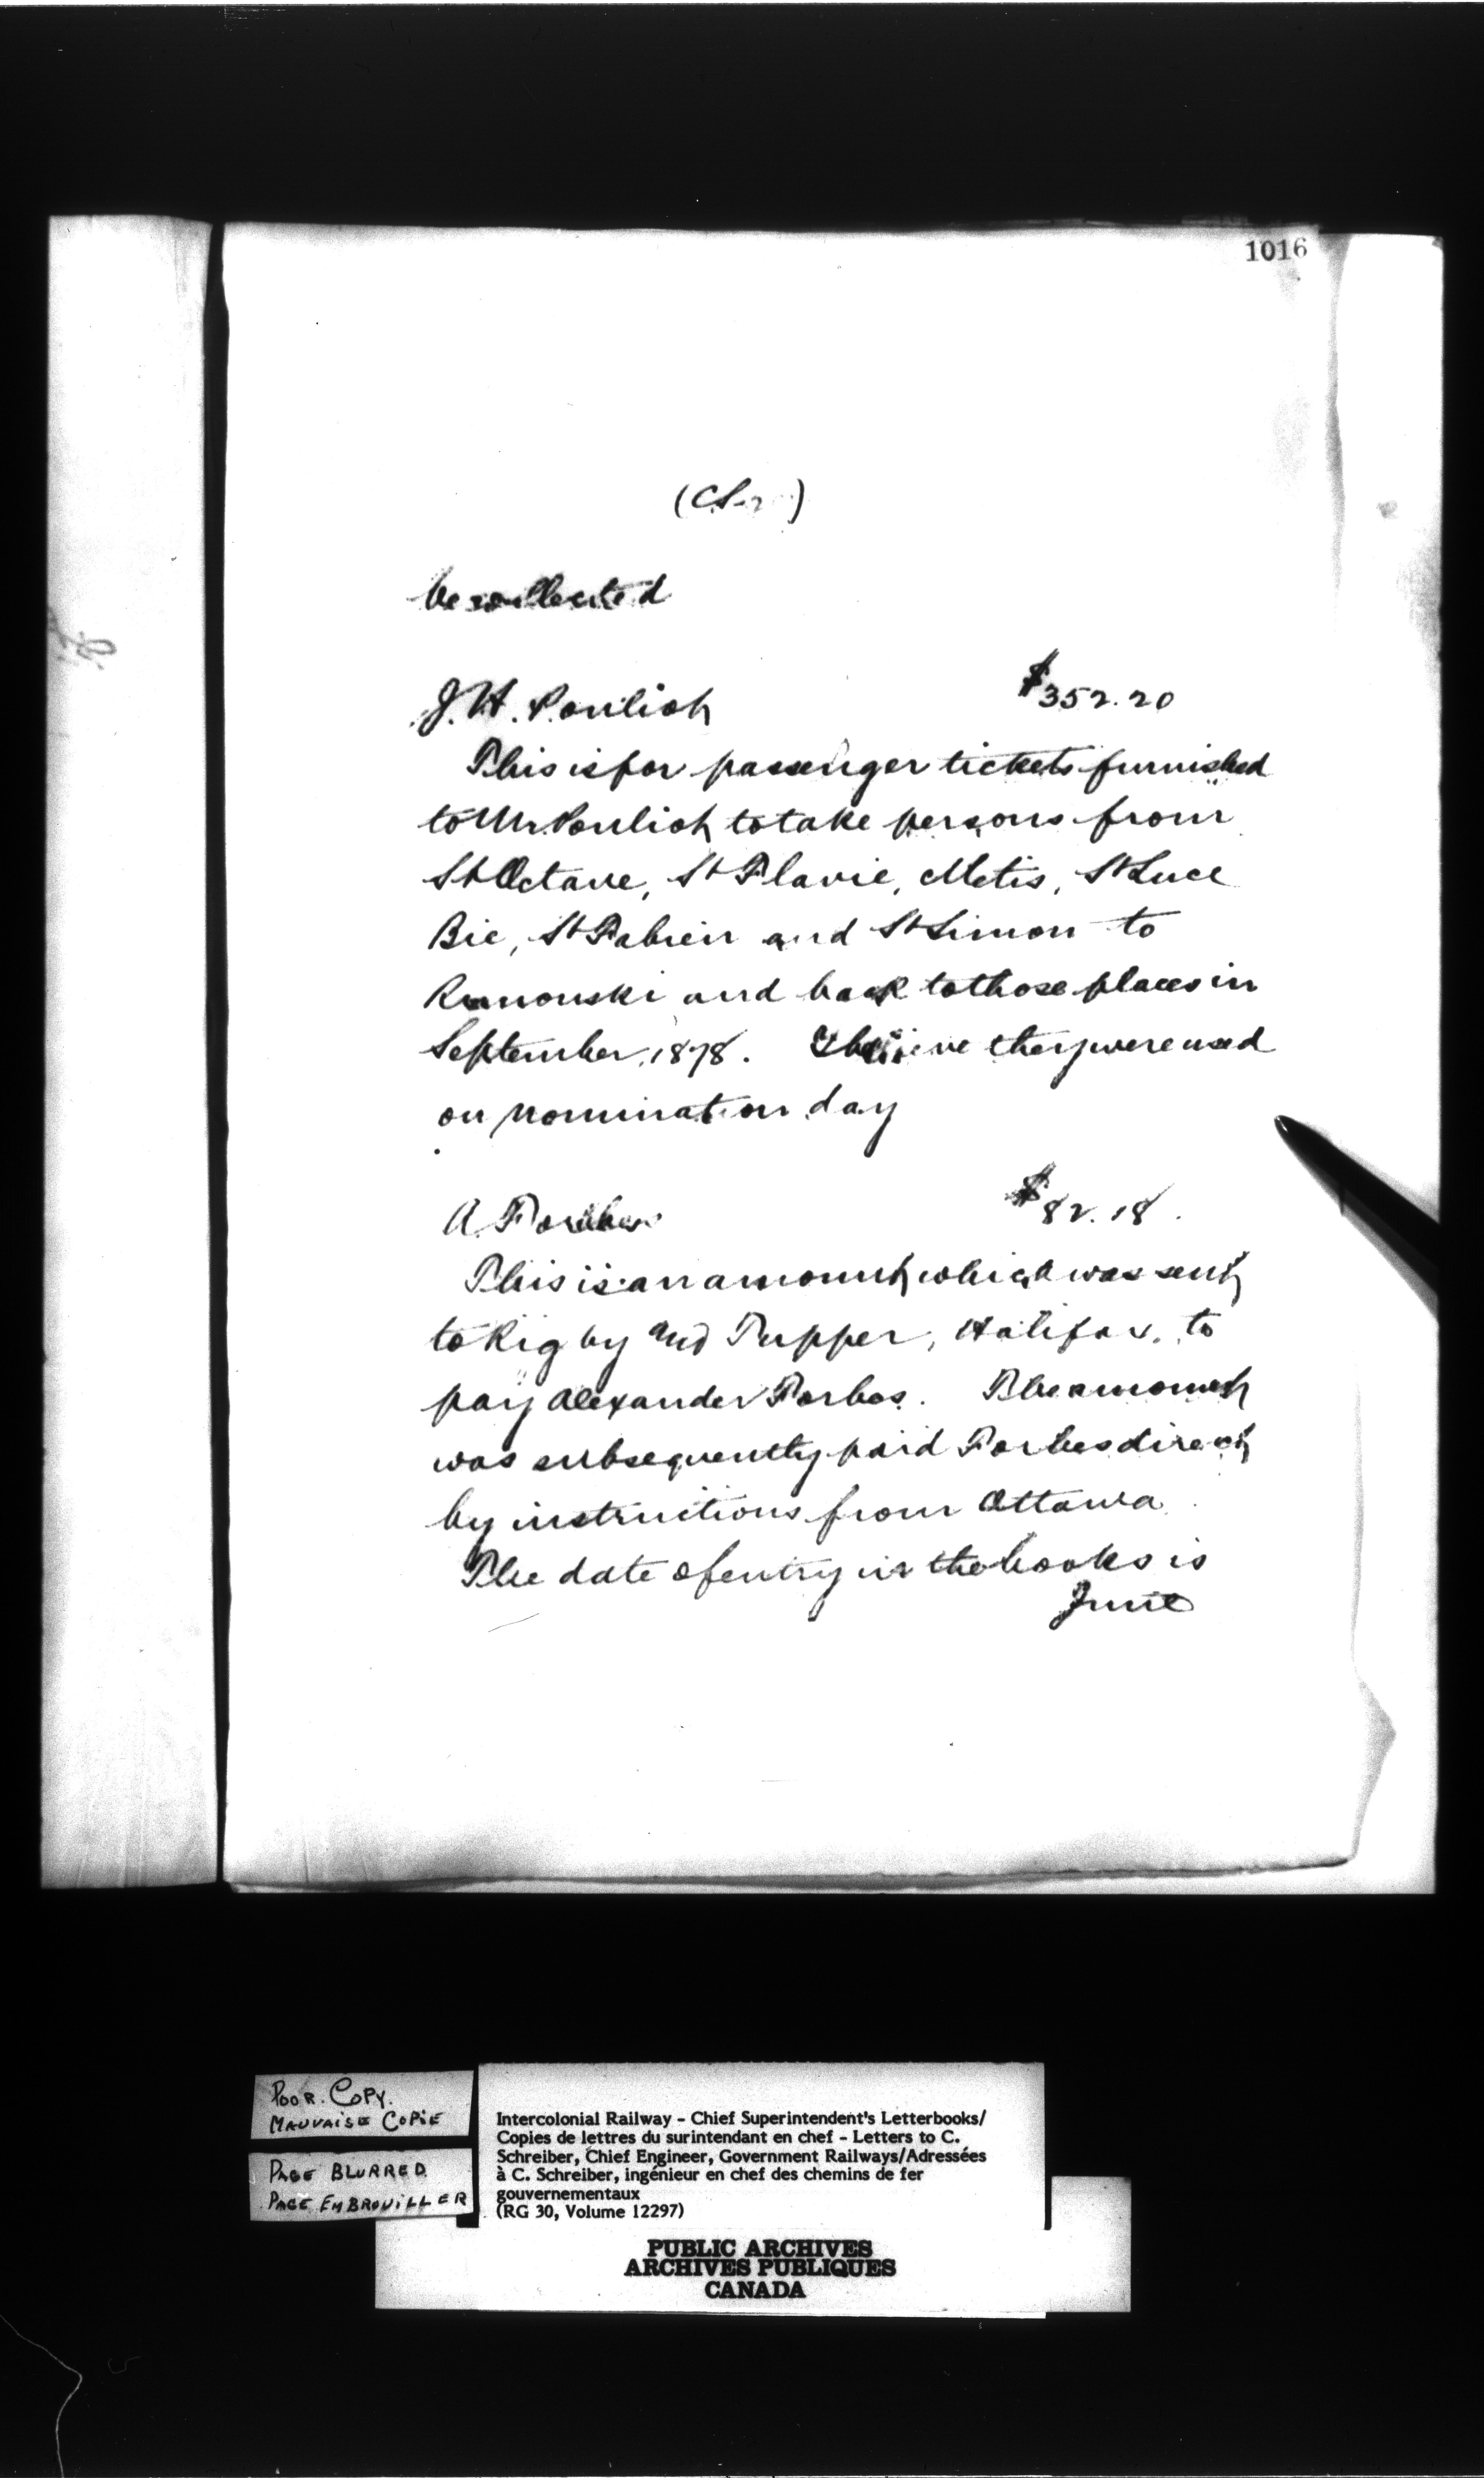 1016
be collected
J. H. Pouliot $352.20
This is for passenger tickets furnished
to Mr Pouliot to take persons from
St Octave, St Flavie, Metis, St Luce
Bic, St Fabien and St Simon to
Rimouski and back to those places in
September, 1878. I believe they were used
on nomination day
A. Forbes $82.18.
This is an amount which was sent
to Rigby and Tupper, Halifax, to
pay Alexander Forbes. The amount
was subsequently paid Forbes direct
by instructions from Ottawa
The date of entry in the books is
June
POOR. COPY.
MAUVAISE COPIE
PAGE BLURRED
PAGE EMBROUILLER
Intercolonial Railway - Chief Superintendent's Letterbooks/
Copies de lettres du surintendant en chef - Letters to C.
Schreiber, Chief Engineer, Government Railways/Adressées
à C. Schreiber, ingénieur en chef des chemins de fer
gouvernementaux
(RG 30, Volume 12297)
PUBLIC ARCHIVES
ARCHIVES PUBLIQUES
CANADA